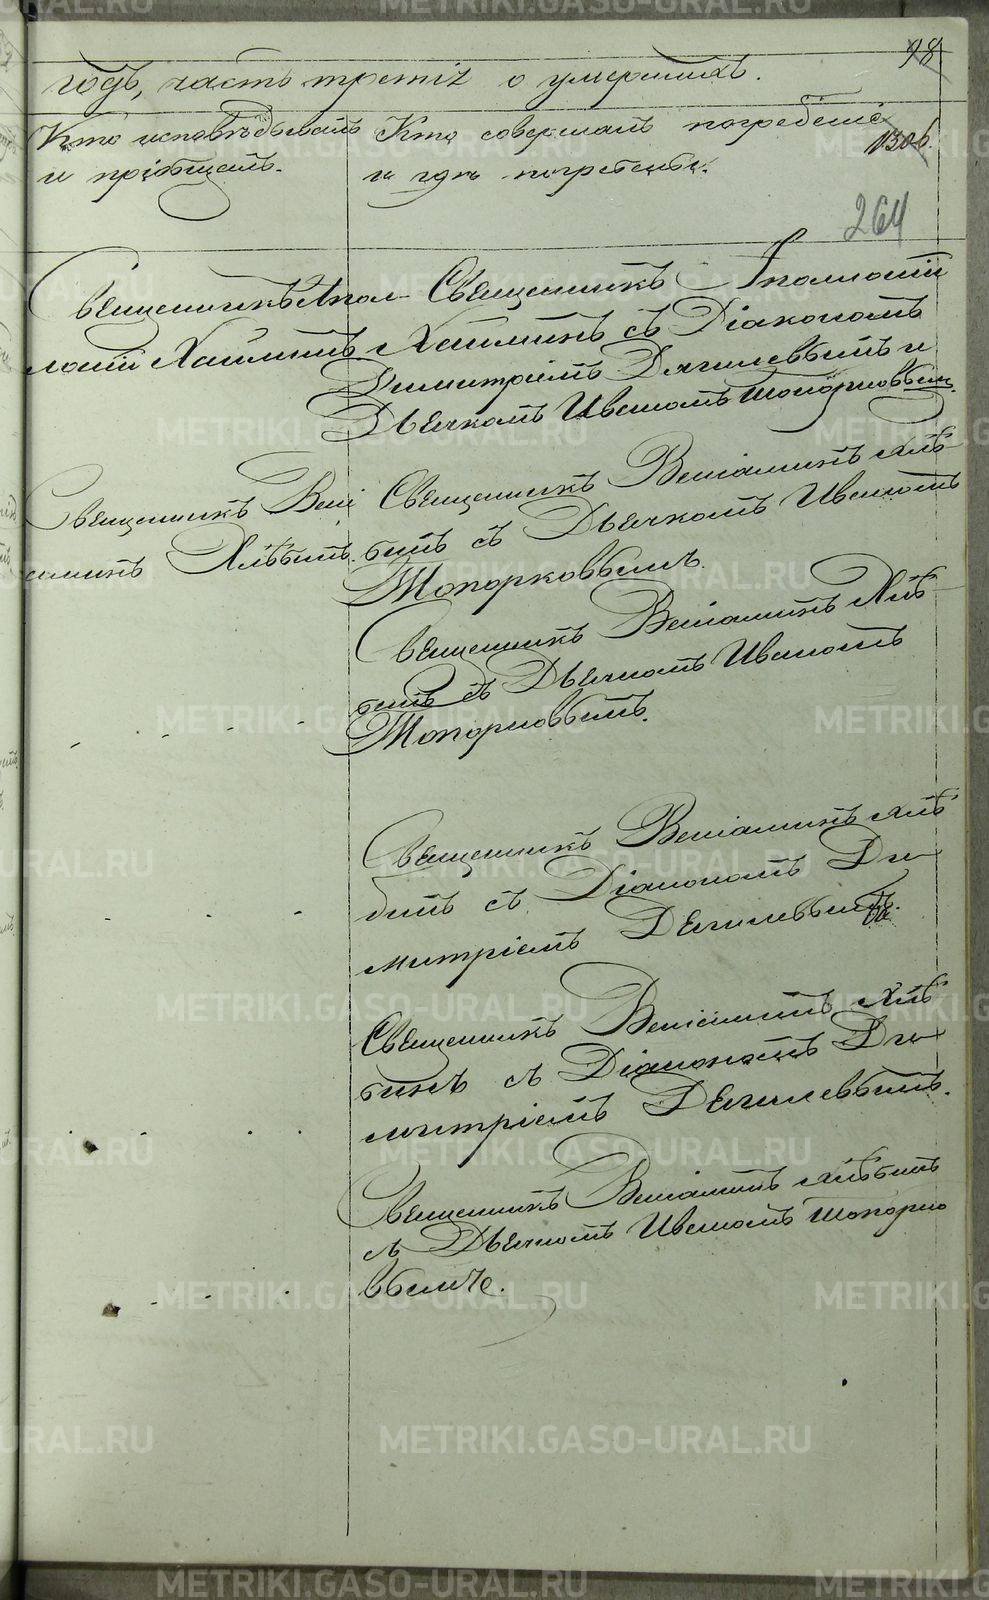 98
годъ, часть третія о умершихъ.
Кто исповѣдывалъ
и пріобщалъ.
Кто совершалъ погребеніе
и гдѣ погребены.
130 об.
264
Священникъ Апол-
лоній Хаминъ.
Священникъ Аполлоній
Хаминъ съ Діакономъ
Димитріемъ Дягилевымъ и
Дьячкомъ Иваномъ Топорковым.
Священникъ Вені
аминъ Хлѣбинъ.
Священникъ Веніаминъ Хлѣ-
бинъ съ Дьячкомъ Иваномъ
Топорковымъ.
Священникъ Веніаминъ Хлѣ-
бинъ съ Дьячкомъ Иваномъ
Топорковымъ.
Священникъ Веніаминъ Хлѣ-
бинъ съ Діакономъ Ди-
митріемъ Дягилевымъ.
Священникъ Веніаминъ Хлѣ-
бинъ съ Діакономъ Ди-
митріемъ Дягилевымъ.
Священникъ Веніаминъ Хлѣбинъ
съ Дьячкомъ Иваномъ Топорко
вымъ.
METRIKI.GASO-URAL.RU